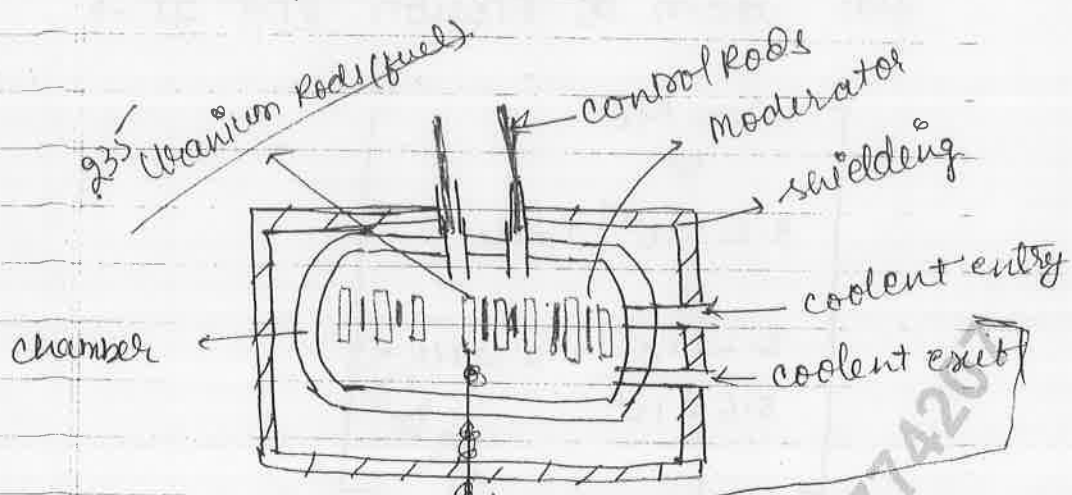 235 Uranium Rods (fuel).
control Rods
Moderator
shielding
coolent entry
chamber
coolent exit
774207